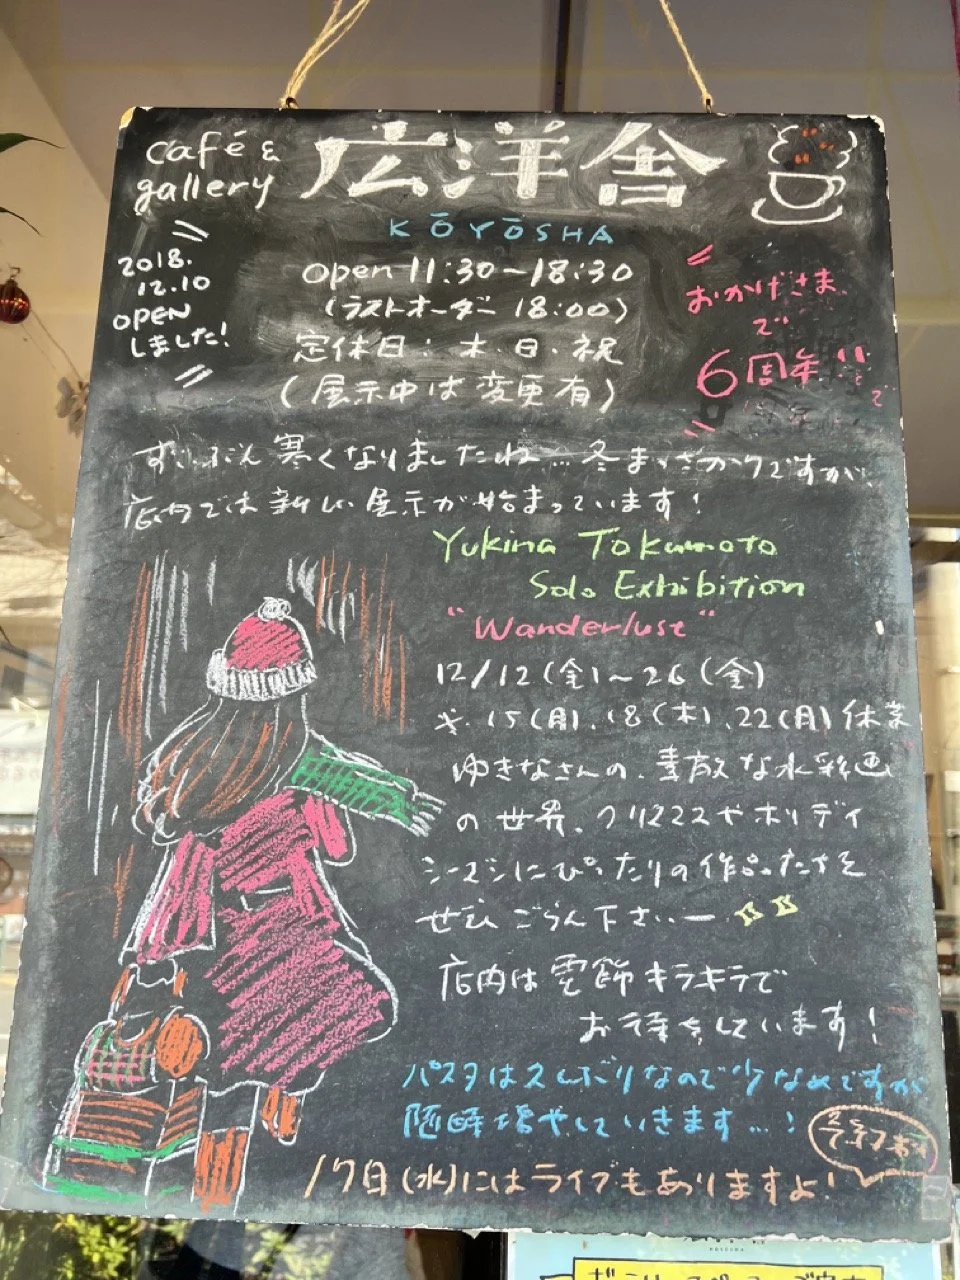 café &
gallery
広洋舎
KŌYŌSHA
2018.
12.10
OPEN
しました!
open 11:30～18:30
(ラストオーダー 18:00)
定休日: 木・日・祝
(展示中は変更有)
おかげさま
で
6周年
ずいぶん寒くなりましたね…冬まっさかりですが、
店内では新しい展示が始まっています!
Yukina Tokumoto
Solo Exhibition
"Wanderlust"
12/12(金)～26(金)
15(月).18(木).22(月)休業
ゆきなさんの、素敵な水彩画
の世界。クリスマスやホリデイ
シーズンにぴったりの作品たちを
ぜひごらん下さいー
店内は電飾キラキラで
お待ちしています!
パスタはスんドリなので少なめですが
随時増やしていきます…!
17日(水)にはライブもありますよ!